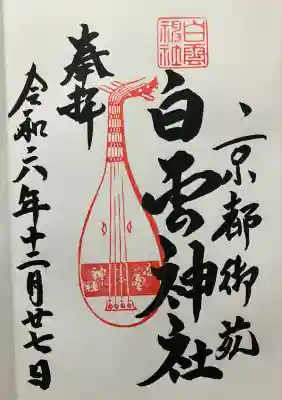 京都御苑
白雲神社
白雲神社
奉拝
令和六年十二月廿七日